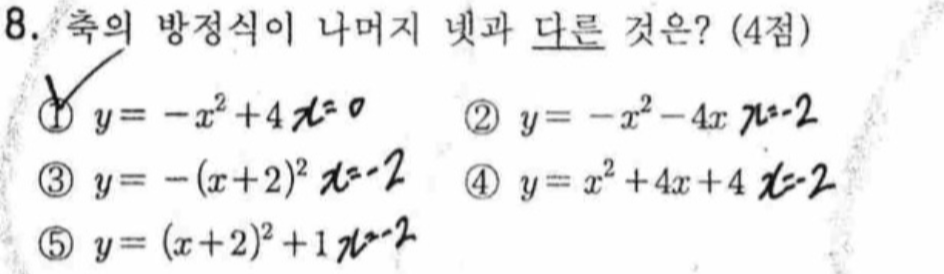 8. 축의 방정식이 나머지 넷과 다른 것은? (4점)
① y = -x² + 4 x=0 ② y = -x² - 4x x=-2
③ y = -(x+2)² x=-2 ④ y = x² + 4x + 4 x=-2
⑤ y = (x+2)² + 1 x=-2